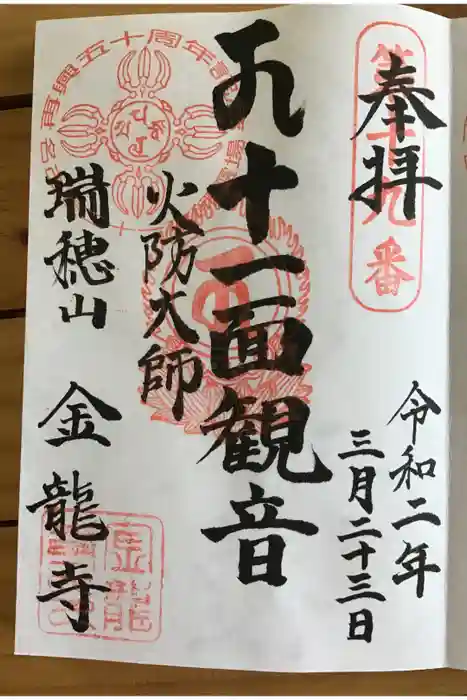 奉拝
番
令和二年
三月二十三日
十一面観音
火防大師
五十周年
瑞穂山
金龍寺